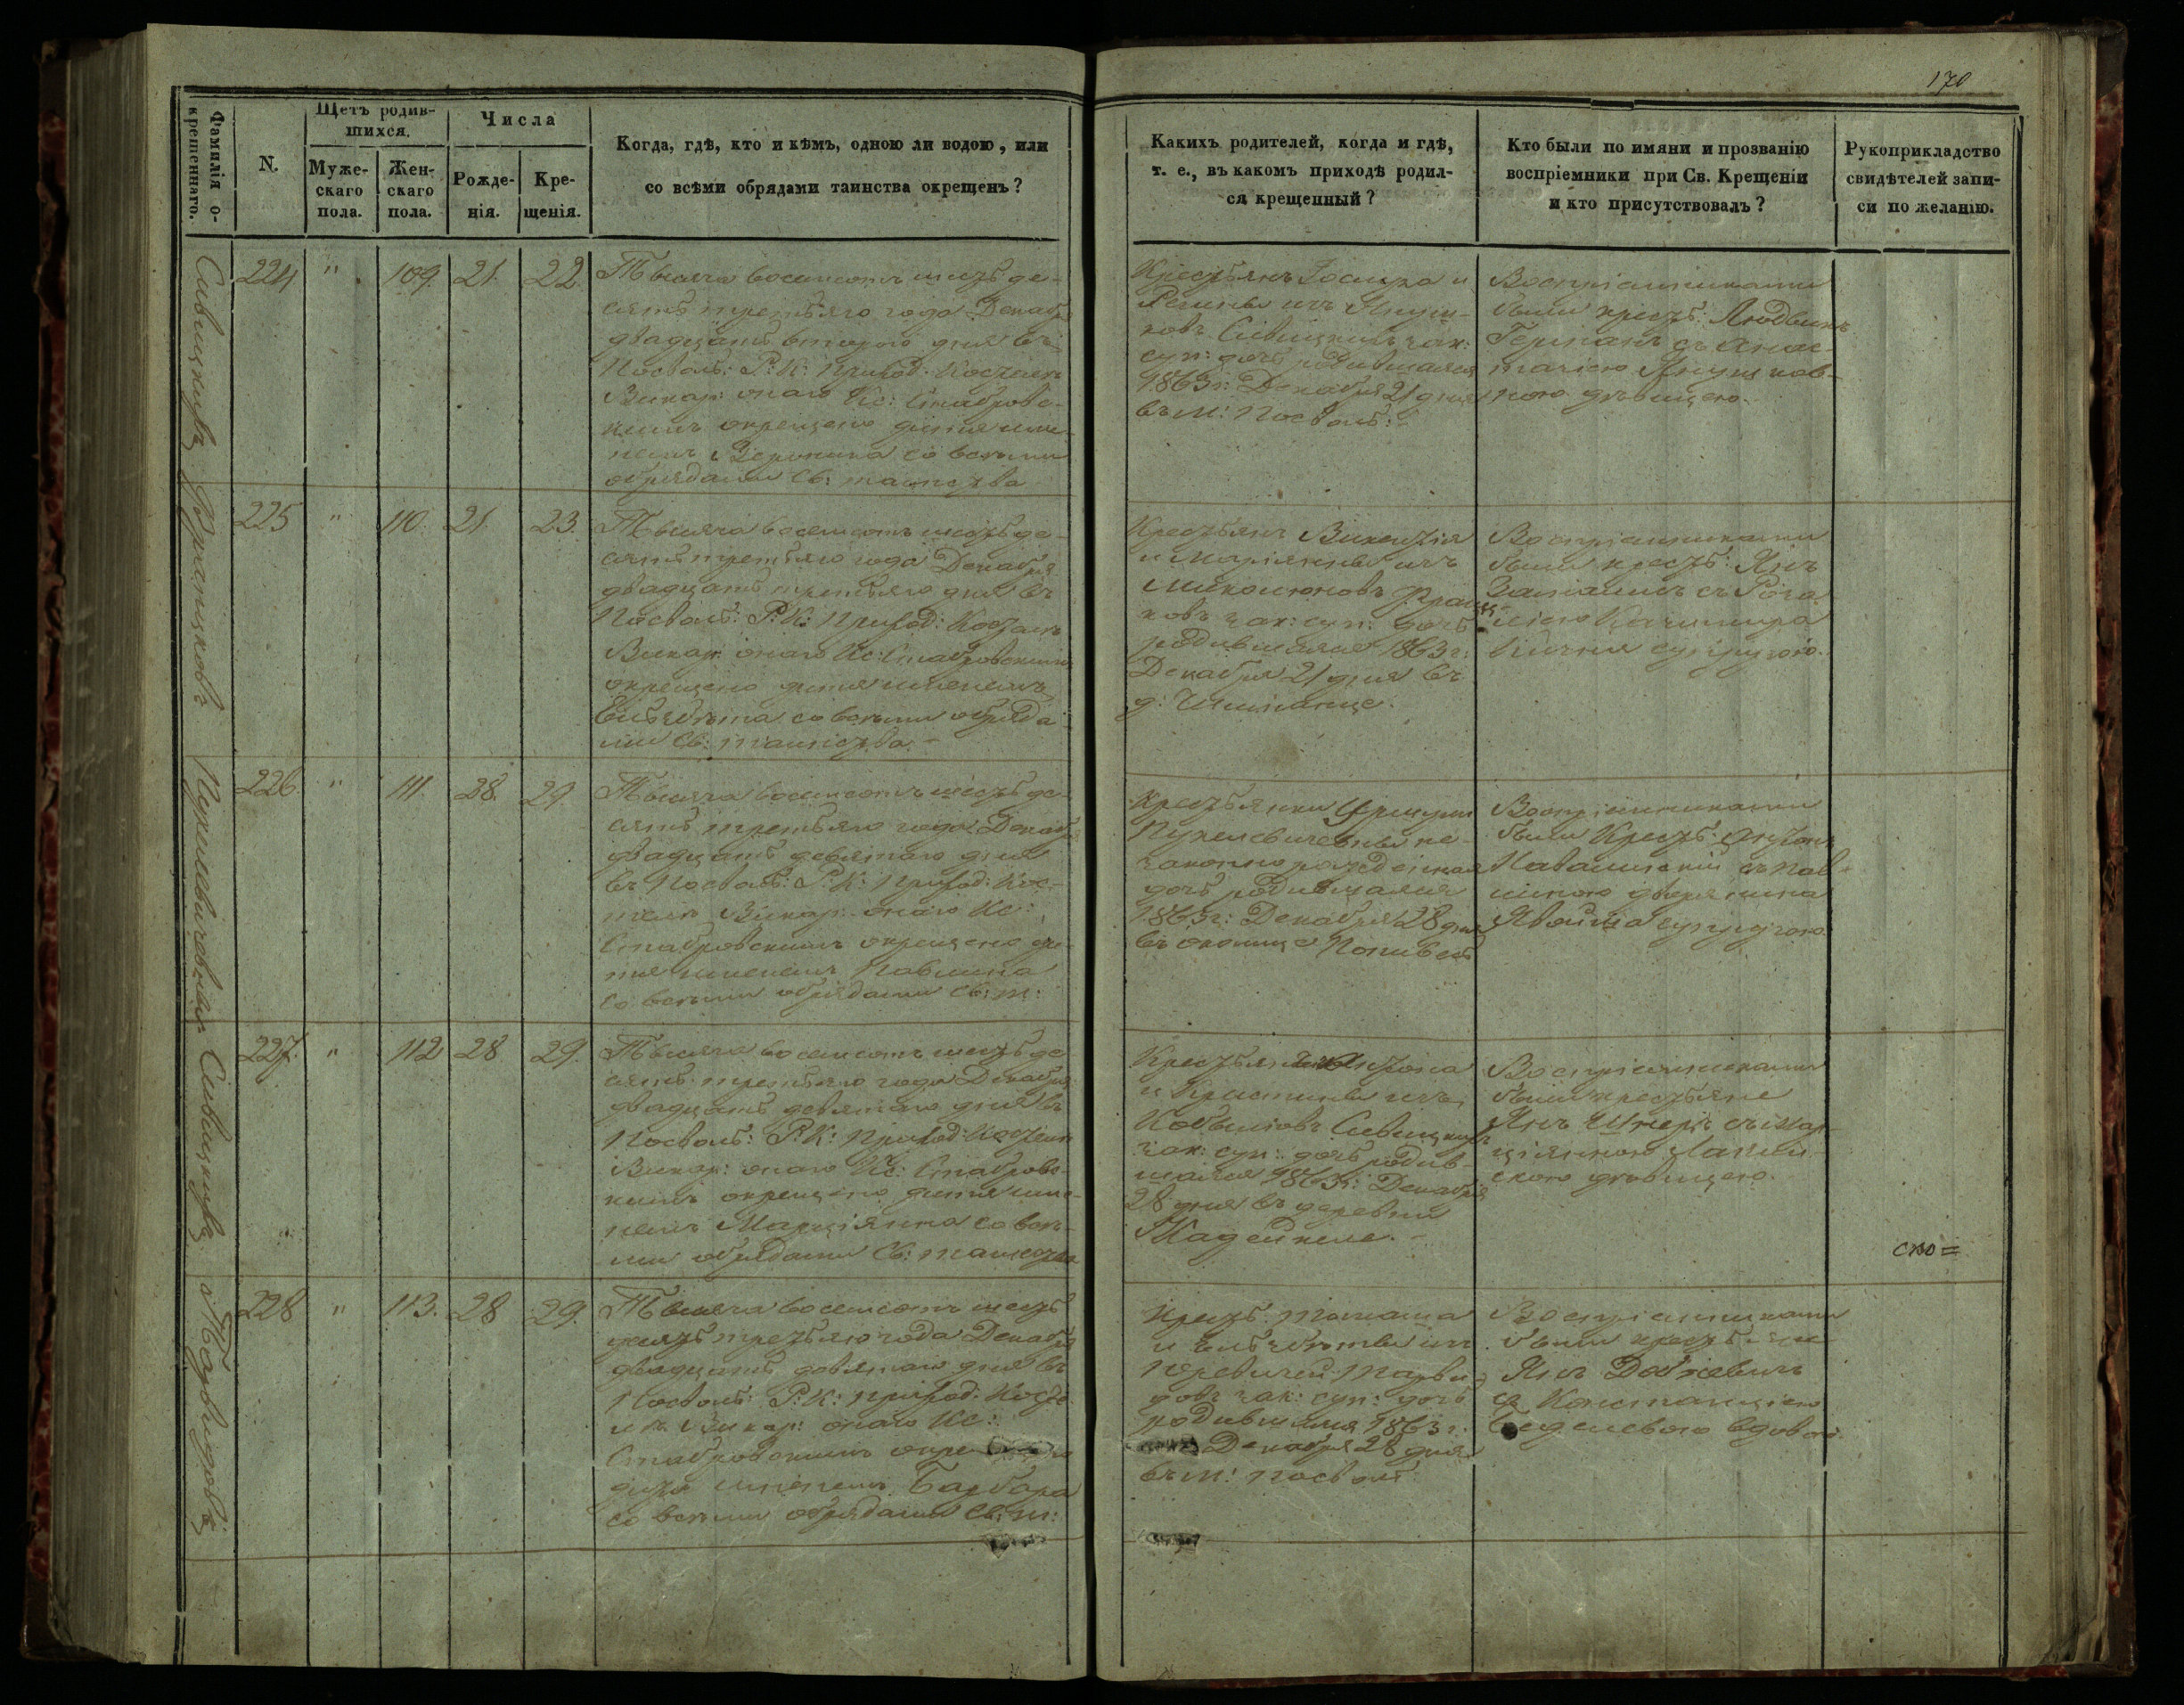 170
Фамилія о-
крещеннаго.
N.
Щетъ родив-
шихся.
Муже-
скаго
пола.
Жен-
скаго
пола.
Числа
Рожде-
нія.
Кре-
щенія.
Когда, гдѣ, кто и кѣмъ, одною ли водою, или
со всѣми обрядами таинства окрещенъ?
Какихъ родителей, когда и гдѣ,
т. е., въ какомъ приходѣ родил-
ся крещенный?
Кто были по имяни и прозванію
воспріемники при Св. Крещеніи
и кто присутствовалъ?
Рукоприкладство
свидѣтелей запи-
си по желанію.
Сивицкихъ
224 " 109. 21. 22.
Тысяча восемсотъ шесть де-
сятъ третьяго года Декабря
двадцатъ втораго дня въ
Посволь: Р: К: Приход: Костелѣ
Викар: онаго Кс: Стабровс-
кимъ окрещено дитя име-
немъ Вероника со всѣми
обрядами Св: таинства
Крестьянъ Іосифа и
Регины изъ Януш-
ковъ Сивицкихъ зак:
суп: дочь родившаяся
1863 г: Декабря 21 дня
въ м: Посволь:
Воспріемниками
были крест: Людвикъ
Германъ съ Анас-
тасіею Янушков-
ною дѣвицею.
Францковъ
225 " 110. 21. 23.
Тысяча восемсотъ шесть де-
сятъ третьяго года Декабря
двадцатъ третьяго дня въ
Посволь: Р: К: Приход: Костелѣ
Викар: онаго Кс: Стабровскимъ
окрещено дитя именемъ
Елисавета со всѣми обряда-
ми Св: таинства. –
Крестьянъ Викентія
и Маріянны изъ
Миколюновъ Франц-
ковъ зак: суп: дочь
родившаяся 1863 г:
Декабря 21 дня въ
д:
Воспріемниками
были крест: Янъ
съ Роза-
ліею Казимира
супругою.
Пукелевичовна
226. " 111 28. 29.
Тысяча восемсотъ шесть де-
сятъ третьяго года Декабря
двадцатъ девятаго дня
въ Посволь: Р: К: Приход: Кос-
телѣ Викар: онаго Кс:
Стабровскимъ окрещено ди-
тя именемъ Павлина
со всѣми обрядами Св: т:
Крестьянки Уршули
Пукелевичевны не-
законно рожденная
дочь родившаяся
1863 г: Декабря 28 дня
въ околице
Воспріемниками
были Крест: Антонъ
съ Пав-
линою дворянина
супругою.
Сивицкихъ
227. " 112 28. 29.
Тысяча восемсотъ шесть де-
сятъ третьяго года Декабря
двадцатъ девятаго дня въ
Посволь: Р: К: Приход: Костелѣ
Викар: онаго Кс: Стабровс-
кимъ окрещено дитя име-
немъ Марціянна со всѣ-
ми обрядами Св: таинства
Крестьянъ Антона
и Кристины изъ
Сивицкихъ
зак: суп: дочь родив-
шаяся 1863 г: Декабря
28 дня въ деревни
Мадейкеле. –
Воспріемниками
были крестьяне
Янъ съ Мар-
ціянною
скою дѣвицею.
Тарвидовъ
228 " 113. 28 29.
Тысяча восемсотъ шесть
десятъ третьяго года Декабря
двадцатъ девятаго дня въ
Посволь: Р: К: Приход: Косте-
лѣ Викар: онаго Кс:
Стабровскимъ
дитя именемъ Барбара
со всѣми обрядами Св: т:
Крест: Томаша
и Елисаветы изъ
Тарви-
довъ зак: суп: дочь
родившаяся 1863 г:
Декабря 28 дня
въ м: Посволь:
Воспріемниками
были крестьяне
Янъ
съ Констанціею
вдовою.